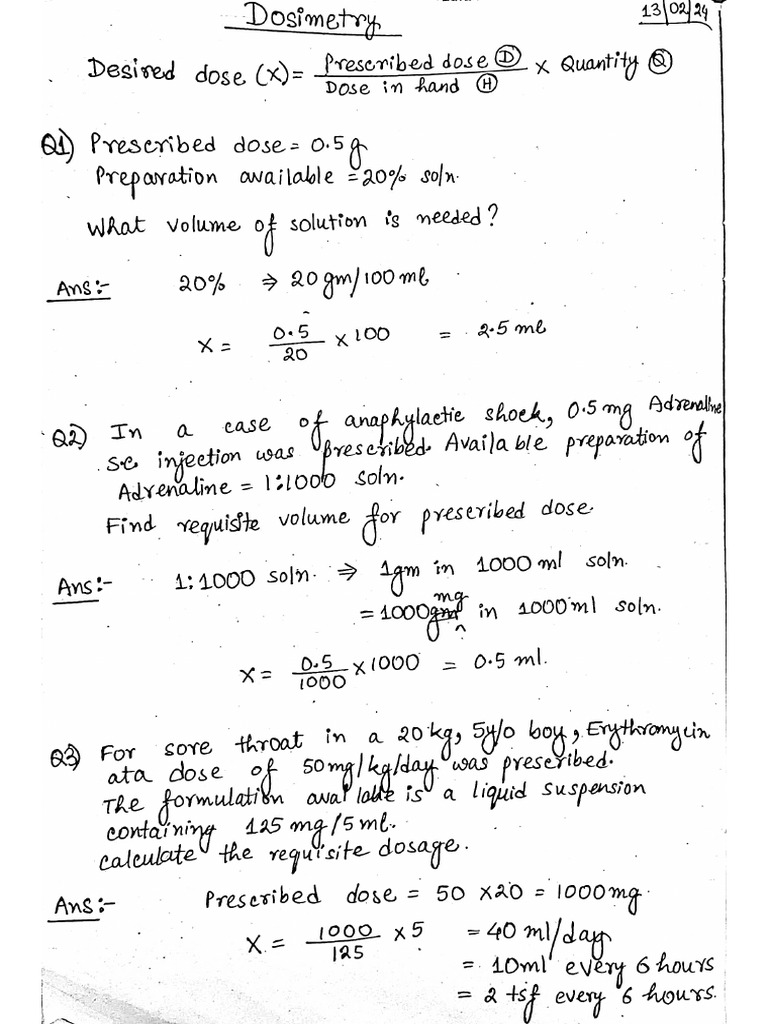 Dosimetry
13/02/24
Desired dose (x) = Prescribed dose (D) / Dose in hand (H) x Quantity (Q)
Q1) Prescribed dose = 0.5g
Preparation available = 20% soln.
What volume of solution is needed?
Ans:- 20% ⇒ 20 gm/100 ml
x = 0.5/20 x 100 = 2.5 ml
Q2) In a case of anaphylactic shock, 0.5 mg Adrenaline
s.c injection was prescribed. Available preparation of
Adrenaline = 1:1000 soln.
Find requisite volume for prescribed dose.
Ans:- 1:1000 soln. ⇒ 1gm in 1000 ml soln.
= 1000 mg in 1000 ml soln.
x = 0.5/1000 x 1000 = 0.5 ml.
Q3) For sore throat in a 20 kg, 5y/o boy, Erythromycin
at a dose of 50mg/kg/day was prescribed.
The formulation available is a liquid suspension
containing 125 mg/5 ml.
calculate the requisite dosage.
Ans:- Prescribed dose = 50 x20 = 1000 mg.
x = 1000/125 x 5 = 40 ml/day
= 10ml every 6 hours
= 2 tsf every 6 hours.